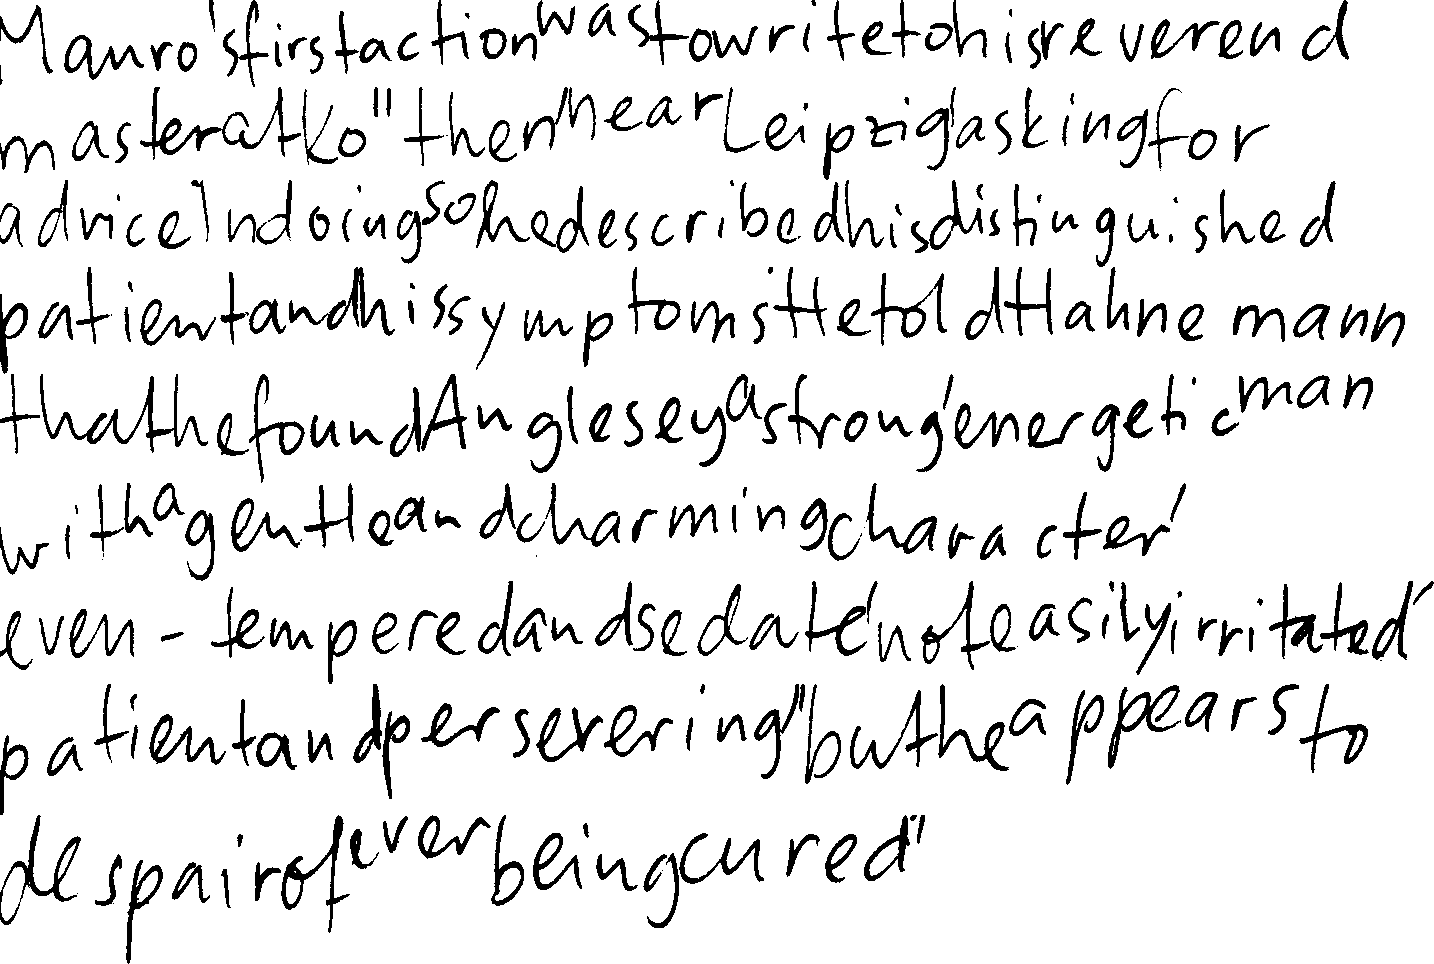 Mauro's first action was to write to his reverend
master at Ko"then near Leipzig' asking for
advice In doing so he described his distinguished
patient and his symptoms He told Hahnemann
that he found Anglesey a strong' energetic man
with a gentle and charming character'
even-tempered and sedate' not easily irritated'
patient and persevering" but he appears to
despair of ever being cured"